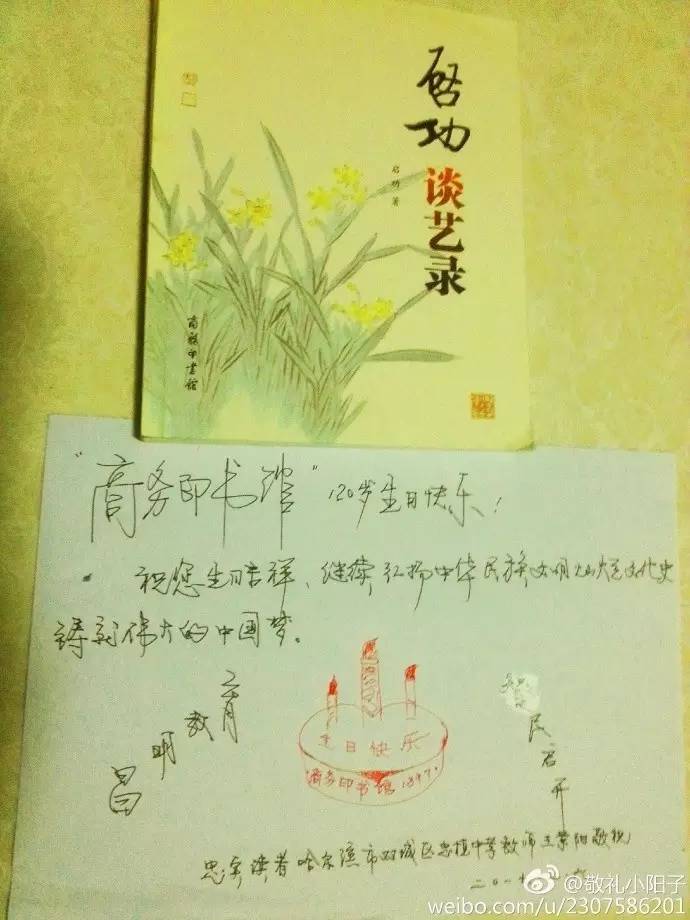 启功
谈艺录
启功 著
商务印书馆
“商务印书馆”120岁生日快乐！
祝您生日吉祥、继续弘扬中华民族文明灿烂文化史
铸就伟大的中国梦。
昌明教育
民启开
生日快乐
商务印书馆1897.
忠实读者哈尔滨市双城区忠植中学教师王荣阳敬祝
@敬礼小阳子
weibo.com/u/2307586201